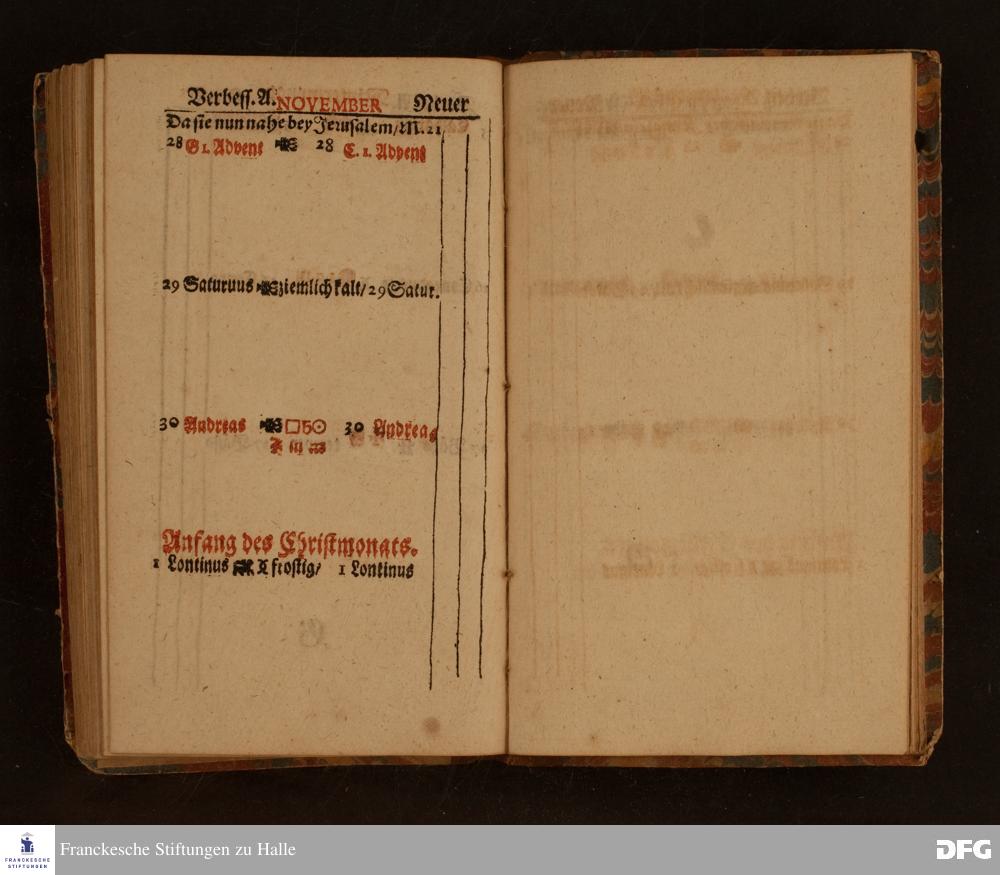 Verbeſſ. A. NOVEMBER Neuer
Da ſie nun nahe bey Jeruſalem/ M. 21
28 G 1. Advent 28 C. 1. Advent
29 Saturuus ziemlich kalt/ 29 Satur.
30 Andreas □♄☉ 30 Andreas
Anfang des Chriſtmonats.
1 Lontinus froſtig/ 1 Lontinus
FRANCKESCHE
STIFTUNGEN
Franckesche Stiftungen zu Halle
DFG